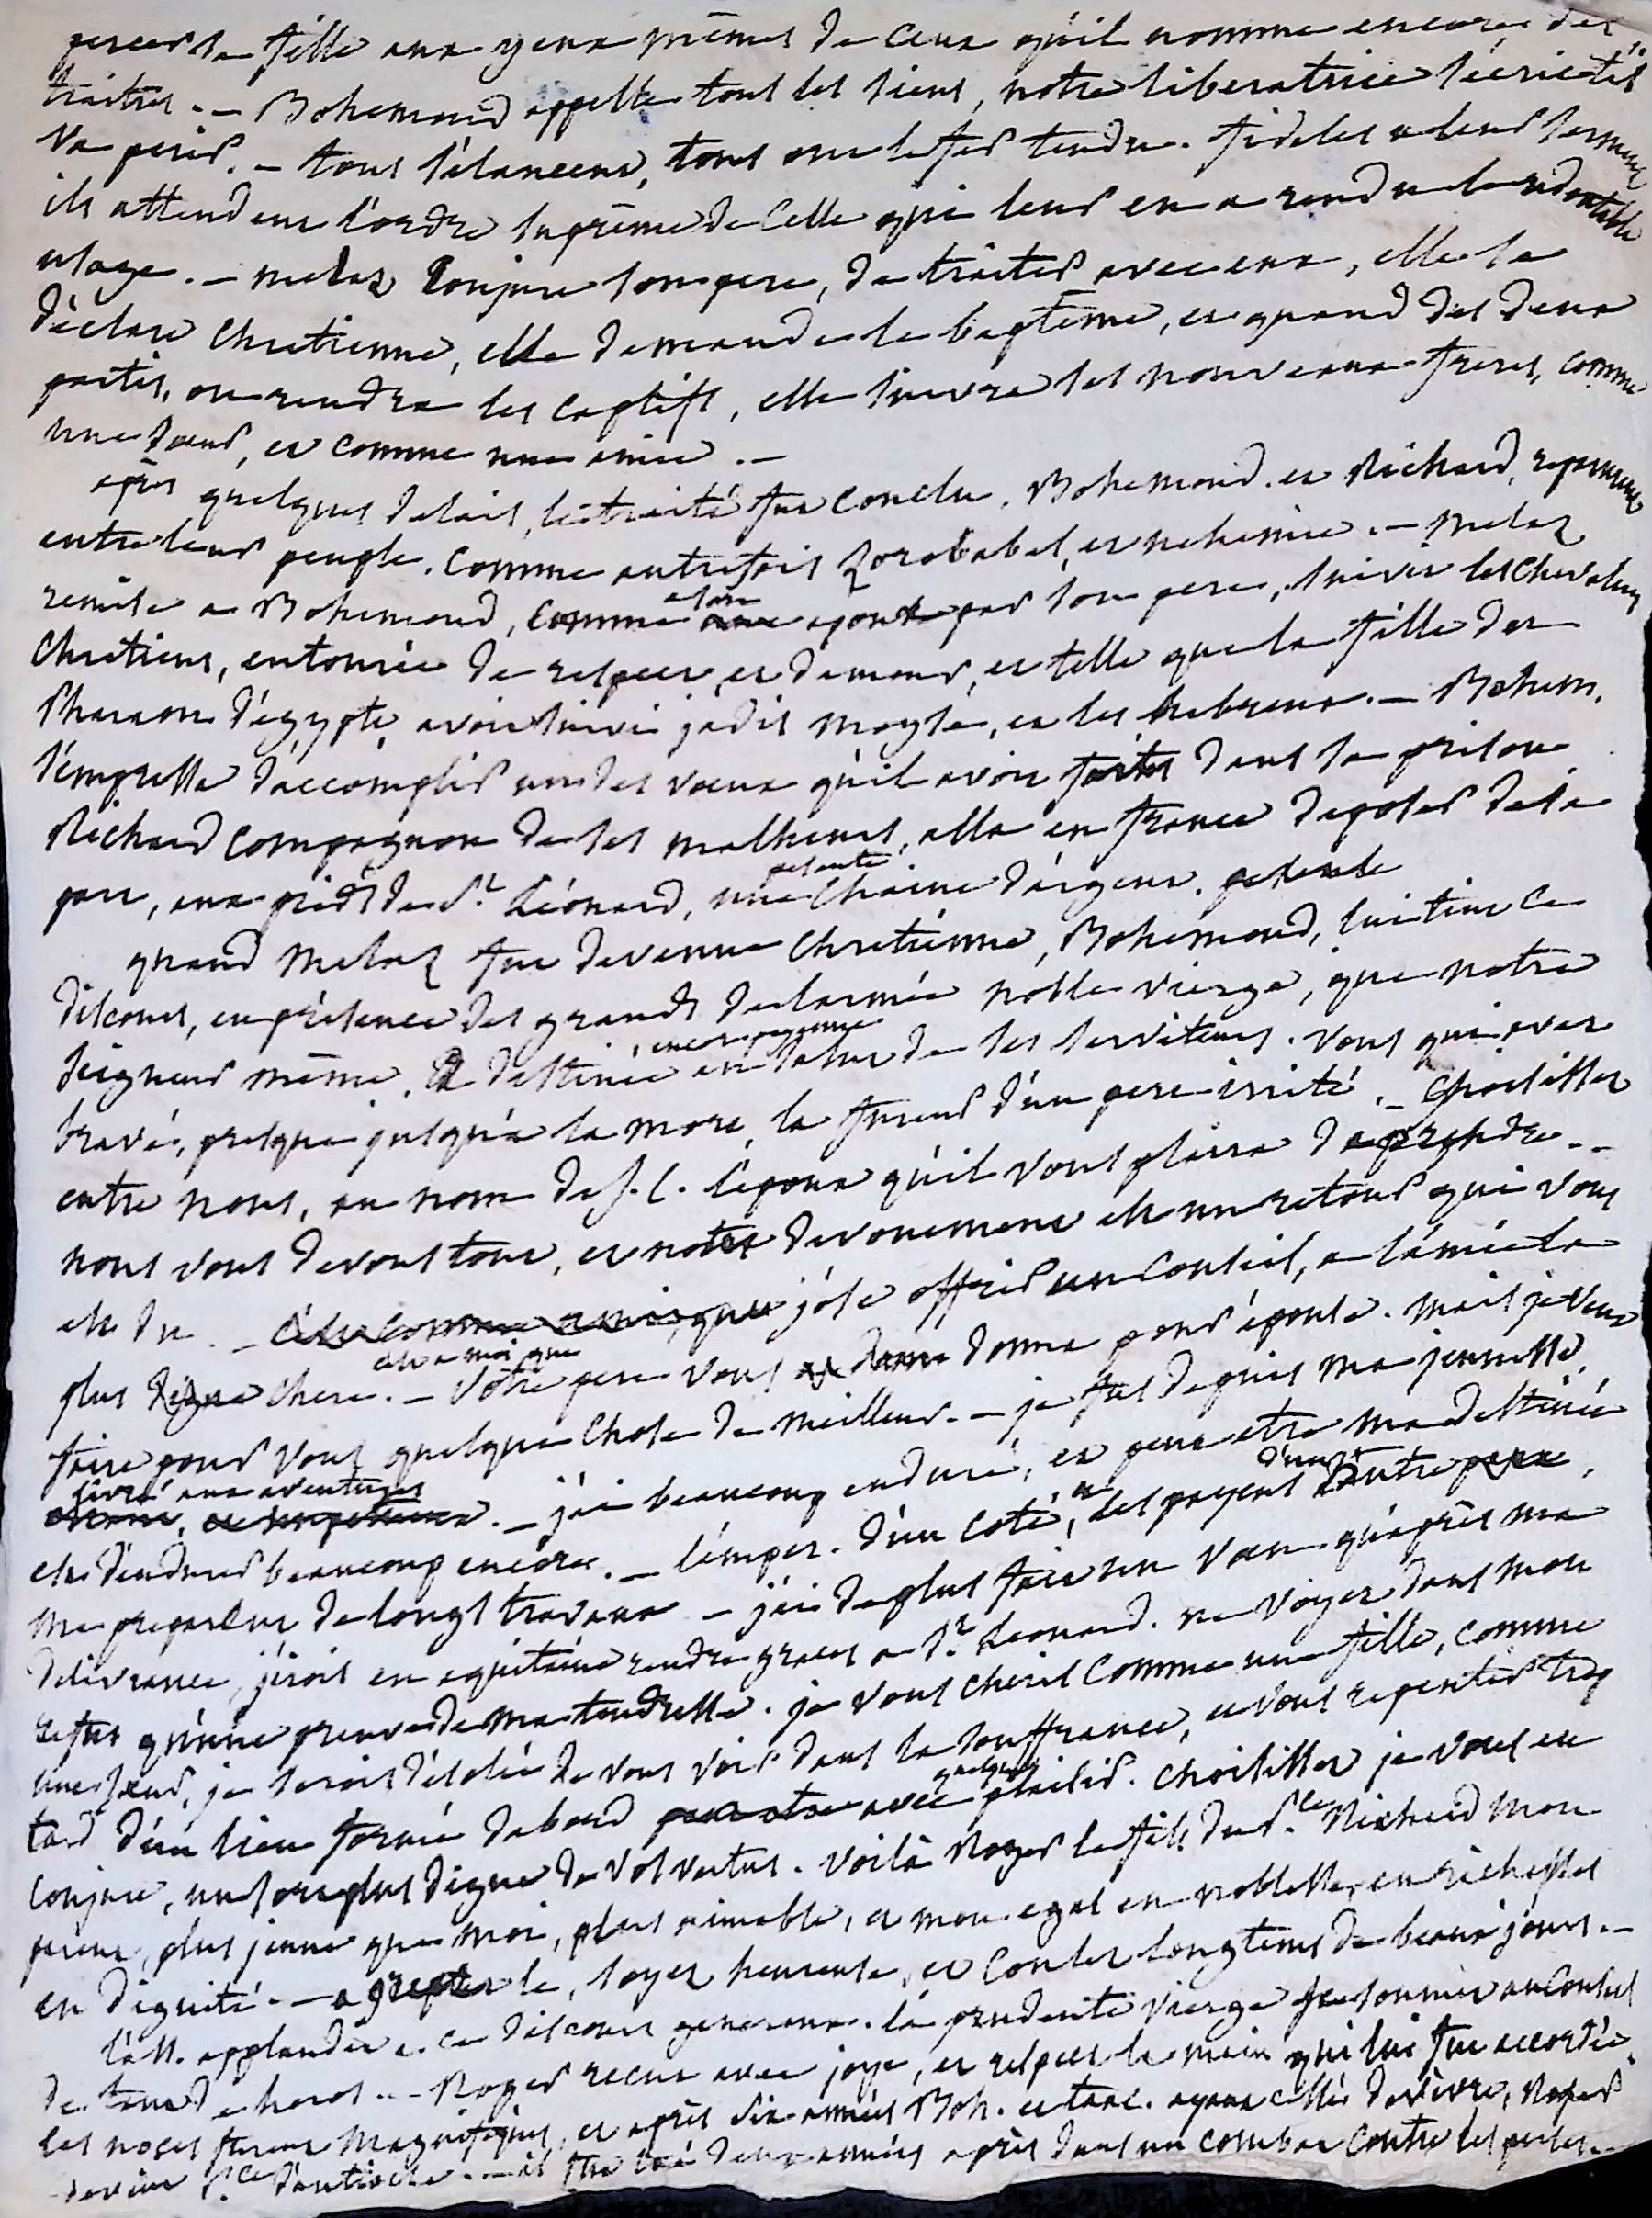 percer sa fille aux yeux mêmes de ceux qu'il nomme encore des
traitres. – Bohemond appelle tous les siens, notre liberatrice s'écrie t'il
va perir. – tous s'élancent, tous ont le fer tendu. fideles a leur serment
ils attendent l'ordre suprême de celle qui leur en a rendu le redoutable
usage. – melaz conjure son pere, de traiter avec eux, elle se
déclare chretienne, elle demande le baptême, et quand des deux
partis, on rendra les captifs, elle suivra ses nouveaux freres, comme
une sœur, et comme une amie. –
après quelques delais, le traité fut conclu. Bohemond et Richard, reparurent
entre leur peuple. comme autrefois Zorobabel, et nehemie. – melaz
remise a Bohemond, comme par son pere, suivit les chevaliers
chretiens, entourée de respect, et d'amour, et telle que la fille des
Pharaon d'égypte, avoit suivi jadis moyse, et les hebreux. – Bohem.
s'empressa d'accomplir un des vœux qu'il avoit faits dans sa prison
Richard compagnon de ses malheurs, alla en france deposer de sa
part, aux pieds de St. Léonard, une pesante chaine d'argent. pesante
quand melaz fut devenue chretienne, Bohemond, lui tint ce
discours, en présence des grands de l'armée noble vierge, que notre
seigneur même, a destinée, encore payenne au salut de ses serviteurs. vous qui avez
bravé, presque jusqu'a la mort, la fureur d'un pere irrité. – choisissez
entre nous, au nom de J. C. l'epoux qu'il vous plaira de prendre. –
nous vous devons tout, et notre devouement est un retour qui vous
est du. – c'est comme amis que j'ose offrir un conseil, a l'amie la
plus digne chere. – c'est a moi que votre pere vous donna pour épouse. mais je veux
faire pour vous quelque chose de meilleur. – je fus depuis ma jeunesse,
livré aux aventures. – j'ai beaucoup enduré, et peut etre ma destinée
est d'endurer beaucoup encore. – l'emper. d'un coté, et les payens d'un autre
me preparent de longs travaux – j'ai de plus fait un vœu qu'après ma
delivrance, j'irois en aquitaine rendre graces a St. Leonard. ne voyez dans mon
refus qu'une preuve de ma tendresse. je vous cheris comme une fille, comme
une sœur, je serois désolé de vous voir dans la souffrance, et vous repentir trop
tard d'un lien formé d'abord peut etre avec quelque plaisir. choisissez je vous en
conjure, un sort plus digne de vos vertus. voilà Roger le fils du Pce. Richard mon
parent, plus jeune que moi, plus aimable, et mon egal en noblesse, en richesses
en dignité. – acceptez le, soyez heureuse, et coulez longtems de beaux jours. –
l'ass. applaudit a ce discours genereux. la prudente vierge se soumit au conseil
de tant de heros. – Roger reçut avec joye, et respect la main qui lui fut accordée.
les noces furent magnifiques, et après six années Boh. et tanc. ayant cessé de vivre, Roger
devint Pce. d'antioche. – il fut tué deux années après dans un combat contre les perses. –